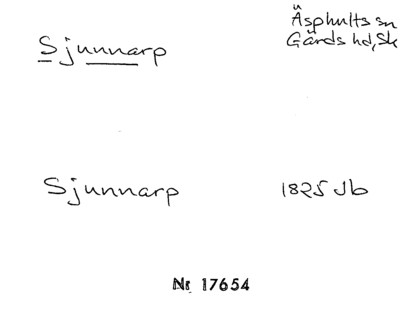 Sjunnarp
Äsphults sn
Gärds hd, Sk
Sjunnarp
1825 Jb
Nr 17654